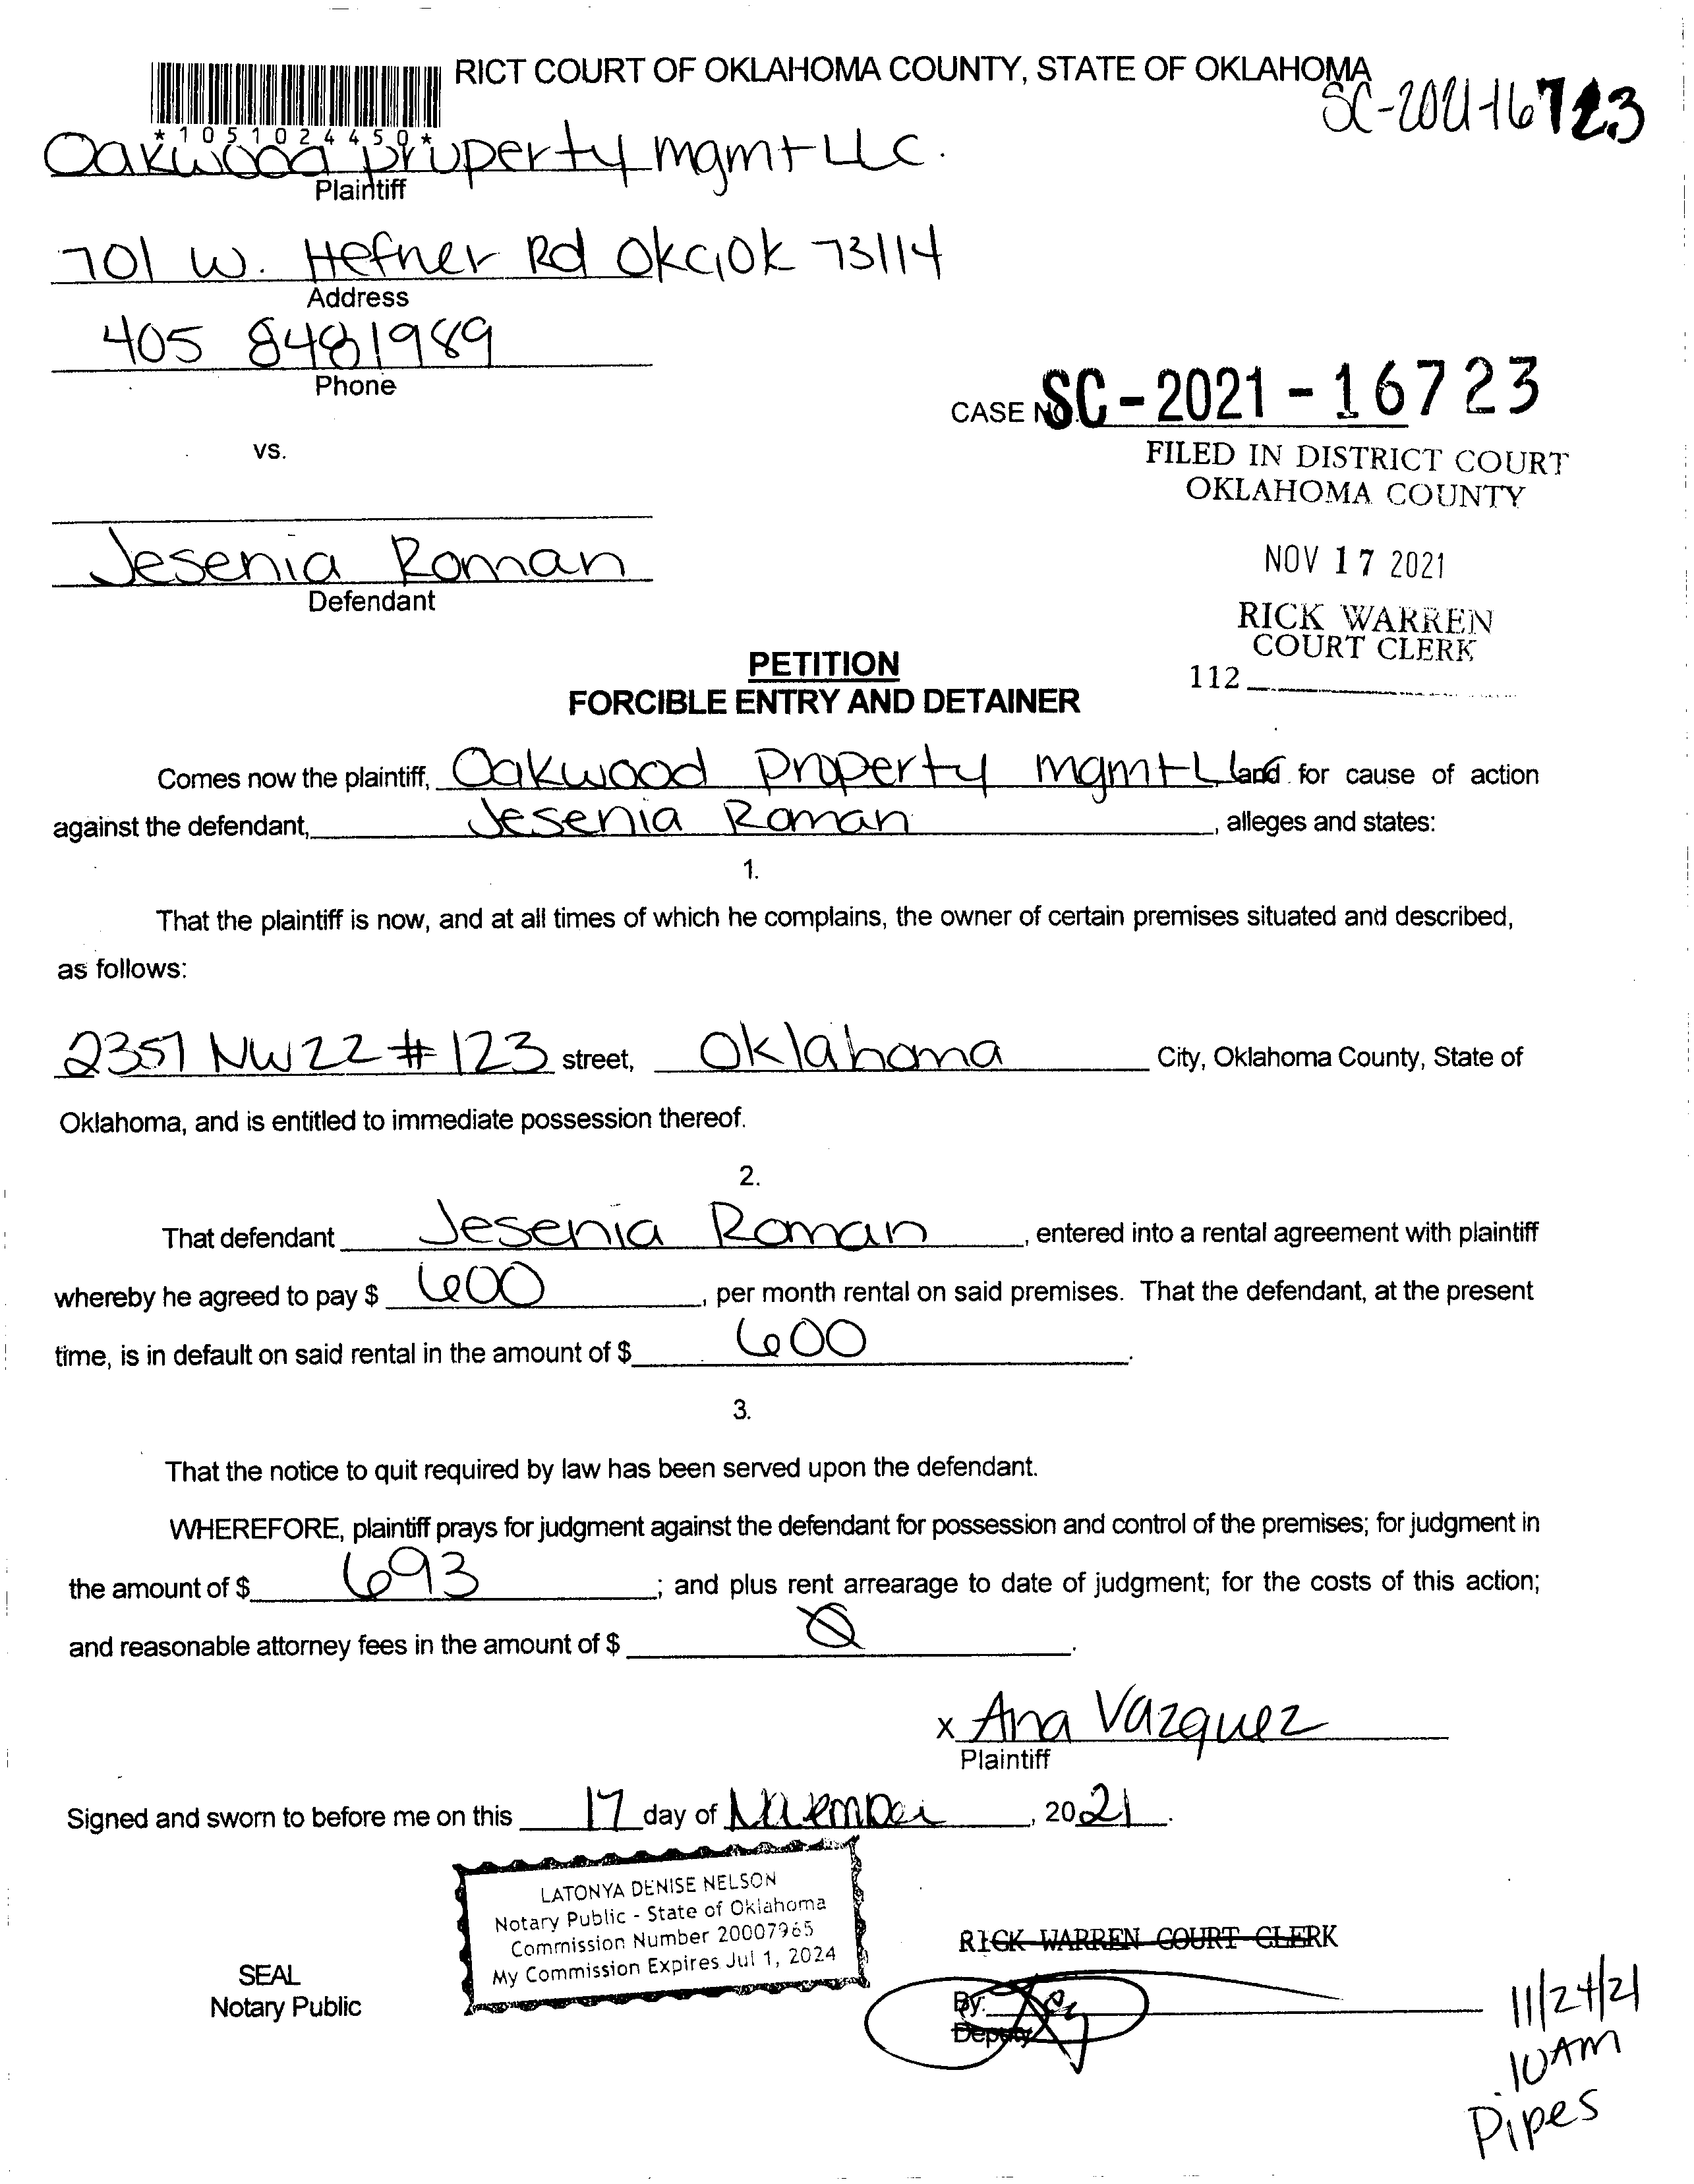 RICT COURT OF OKLAHOMA COUNTY, STATE OF OKLAHOMA
SC-2021-16723
*1051024450*
Oakwood property mgmt LLC.
Plaintiff
701 W. Hefner Rd OKC, OK 73114
Address
405 8481989
Phone
CASE NO. SC-2021-16723
vs.
FILED IN DISTRICT COURT
OKLAHOMA COUNTY
NOV 17 2021
Jesenia Roman
Defendant
RICK WARREN
COURT CLERK
112
PETITION
FORCIBLE ENTRY AND DETAINER
Comes now the plaintiff, Oakwood Property mgmt LLC and for cause of action
against the defendant, Jesenia Roman, alleges and states:
1.
That the plaintiff is now, and at all times of which he complains, the owner of certain premises situated and described,
as follows:
2357 NW 22 # 123 street, Oklahoma City, Oklahoma County, State of
Oklahoma, and is entitled to immediate possession thereof.
2.
That defendant Jesenia Roman, entered into a rental agreement with plaintiff
whereby he agreed to pay $ 600, per month rental on said premises. That the defendant, at the present
time, is in default on said rental in the amount of $ 600.
3.
That the notice to quit required by law has been served upon the defendant.
WHEREFORE, plaintiff prays for judgment against the defendant for possession and control of the premises; for judgment in
the amount of $ 693; and plus rent arrearage to date of judgment; for the costs of this action;
and reasonable attorney fees in the amount of $ Ø.
x Ana Vazquez
Plaintiff
Signed and sworn to before me on this 17 day of November, 2021.
LATONYA DENISE NELSON
Notary Public - State of Oklahoma
Commission Number 20007965
My Commission Expires Jul 1, 2024
SEAL
Notary Public
RICK WARREN COURT CLERK
By:
Deputy
11/24/21
10AM
Pipes